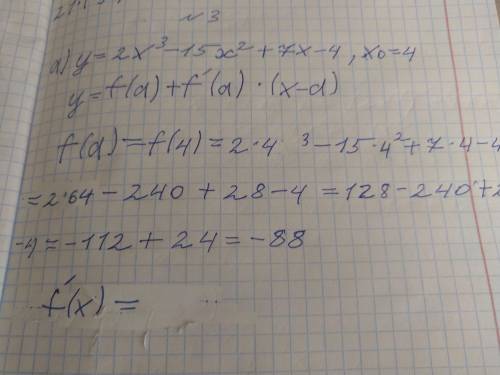 №3
а) y = 2x³ - 15x² + 7x - 4, x0 = 4
y = f(a) + f'(a) · (x - a)
f(a) = f(4) = 2·4³ - 15·4² + 7·4 - 4
= 2·64 - 240 + 28 - 4 = 128 - 240 + 2
-4 = -112 + 24 = -88
f'(x) =